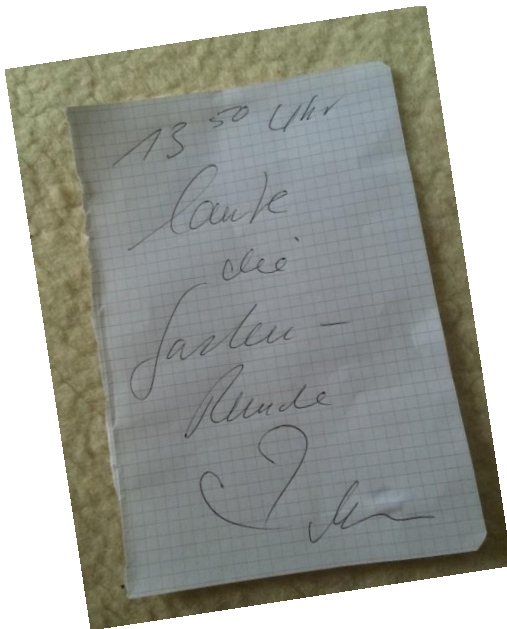 13 50 Uhr
laufe
die
Garten-
Runde